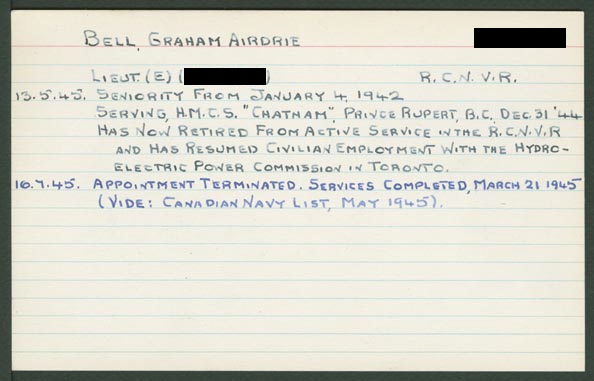 BELL, GRAHAM AIRDRIE
LIEUT. (E) ( ) R.C.N.V.R.
13.5.45. SENIORITY FROM JANUARY 4, 1942
SERVING, H.M.C.S. "CHATHAM", PRINCE RUPERT, B.C. DEC. 31 '44
HAS NOW RETIRED FROM ACTIVE SERVICE IN THE R.C.N.V.R
AND HAS RESUMED CIVILIAN EMPLOYMENT WITH THE HYDRO-
ELECTRIC POWER COMMISSION IN TORONTO.
16.7.45. APPOINTMENT TERMINATED. SERVICES COMPLETED, MARCH 21 1945
(VIDE: CANADIAN NAVY LIST, MAY 1945).